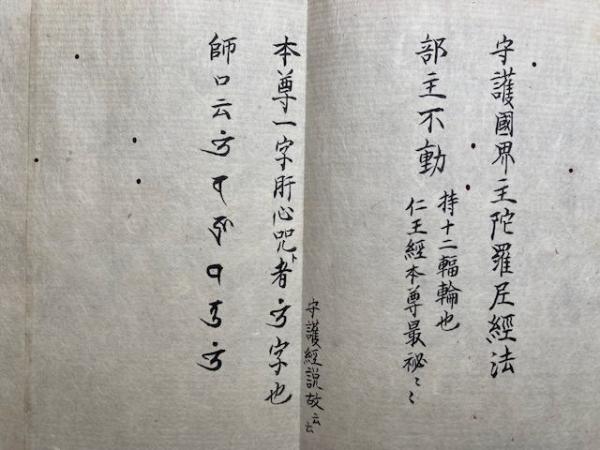 守護國界主陀羅尼經法
部主不動
持十二輻輪也
仁王經本尊最祕〻〻
守護經説故云云
本尊一字肝心咒ト者 字也
師口云